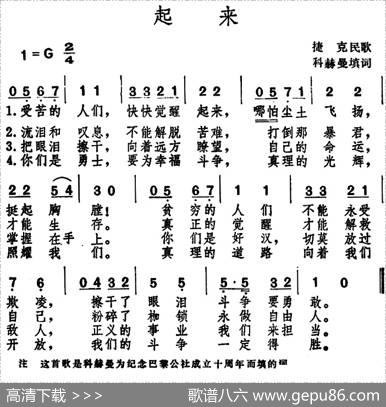 起 来
1=G 2/4
捷克民歌
科赫曼填词
0 5 6·7 | 1 1 | 3 3 2 1 | 2 2 | 0 2 7 1 | 2 2 |
1.受苦的 人们, 快快觉醒 起来, 哪怕尘土 飞扬,
2.流泪和 叹息, 不能解脱 苦难, 打倒那 暴君,
3.把眼泪 擦干, 向着远方 瞭望, 自己的 命运,
4.你们是 勇士, 要为幸福 斗争, 真理的 光辉,
2 2 5(4) | 3 0 | 0 5 6·7 | 1 1 | 0 3 3 2 1 |
挺起胸 膛! 贫穷的 人们 不能永受
才能生 存。 真正的 觉醒 才能解救
掌握在手 上。 你们是 好汉, 切莫放过
照耀我 们。 真理的 道路 向着我们
7 6 | 0 4 3 2 | 5 5 | 5·5 3 2 | 1 0 ‖
欺凌, 擦干了 眼泪 斗争要勇 敢。
自己, 粉碎了 枷锁 永做自由 人。
敌人, 正义的 事业 我们来担 当。
开放, 我们的 斗争 一定得 胜。
注 这首歌是科赫曼为纪念巴黎公社成立十周年而填的词
高清下载 > > > 歌谱八六 www.gepu86.com